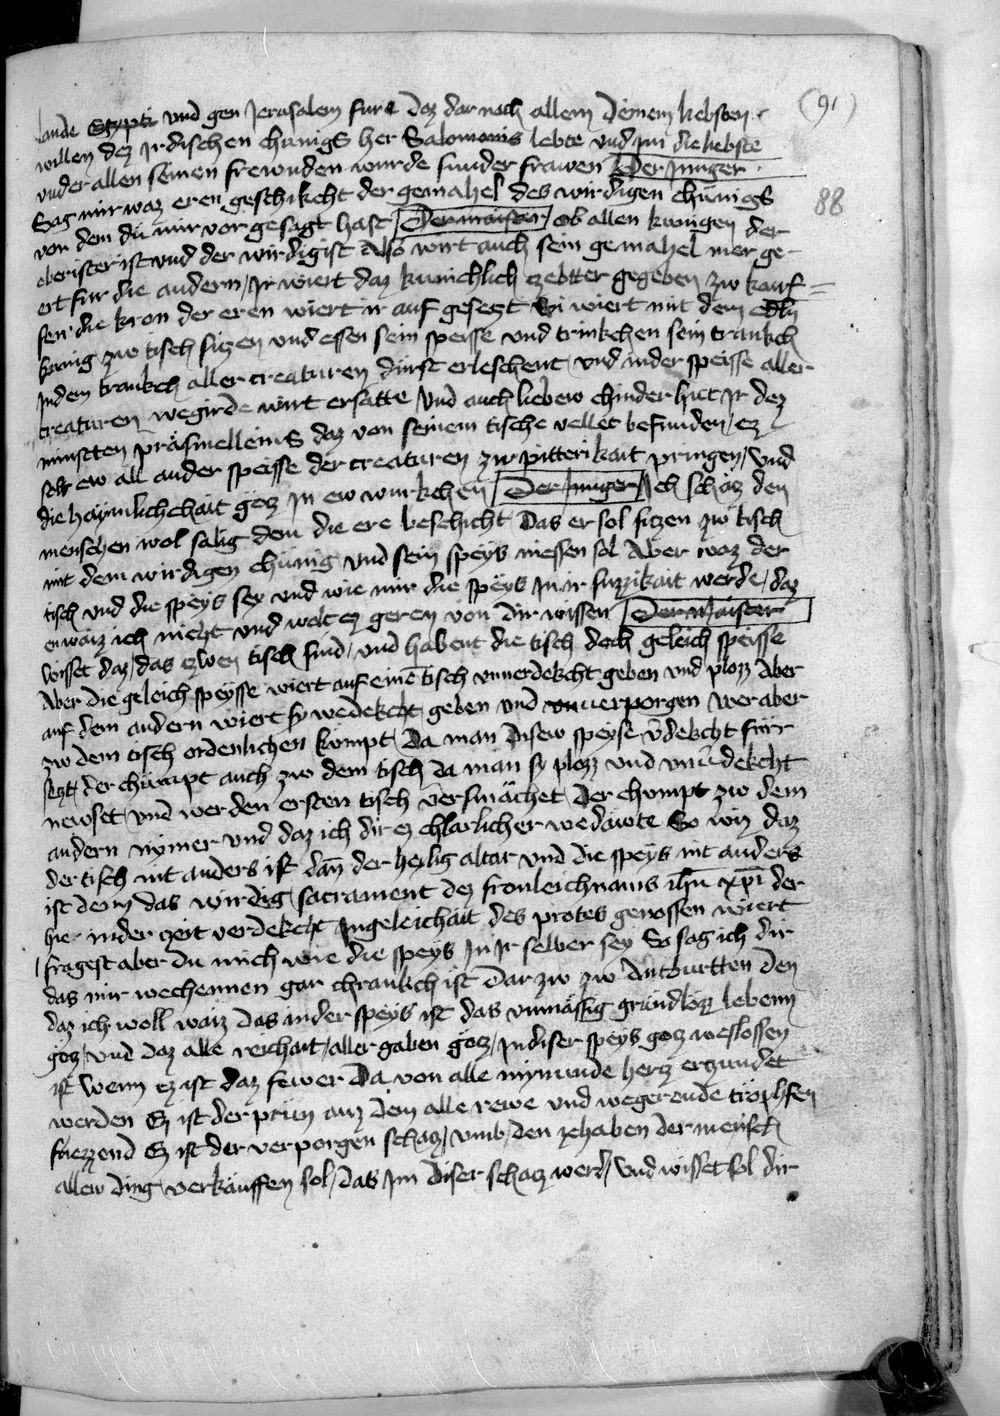 (91)
88
lande Egypti und gen Jerusalem fure daz dar nach allem deinem liebsten
willen dez irdischen chünigs her Salomonis lebte und im die liebste
under allen seinen frewnden wurde sunder frawen Der junger
Sag mir waz eren geschikcht der gemahel des wirdigen chünigs
von dem dü mir vor gesagt hast Der maister ob allen kunigen der
oberister ist und der wirdigist Also wirt auch sein gemahel mer ge-
ert fur die andern / Ir wiert daz kunichlich czebtter gegeben zw kauf=
fen die kron der eren wiert ir auf gesetzt Si wiert mit dem edln
kunig zw tisch siczen und essen sein speisse und trinkchen sein trankch
In dem trankch aller creaturen dürst erleschent / und in der speisse aller
creaturen wegirde wirt ersatte / Und auch liebew chinder hiet ir dez
minsten präsmelleins daz von seinem tische vellet befunden / ez
solt ew all ander speisse der creaturen zw pitterikait pringen / Und
die haymlichchait gotz in ew wurkchen Der junger Ich schätz den
menschen wol salig dem die ere beschicht Das er sol sitzen zw tisch
mit dem wirdigen chünig und sein speys niessen sol Aber waz der
tisch und die speys sey und wie mir die speys in ir suzzikait werde / daz
enwaiz ich nicht und wolt ez geren von dir wissen Der maister
Wisset daz / das czwen tisch sind / und habent die tisch doch geleich speisse
Aber die geleich speysse wiert auf einē tisch unverdekcht geben und plozz Aber
auf dem andern wiert sy wedekcht geben und verporgen wer aber
zw dem tisch ordenlichen kompt / Da man disew speyse v̄dekcht für
setzt / der chümpt auch zw dem tisch da man sy plozz und unv̄dekcht
newset / und wer den ersten tisch versmächet Der chompt zw dem
andern nymer und daz ich dir ez chlarlicher wedäwte So wiz daz
der tisch nit anders ist dan̄ der heylig altar und die speys nit anders
ist denn das wirdig sacrament dez fronleichnams ihū xpi der
hie in der czeit verdekcht in geleichait des protes genossen wiert
fragest aber du mich wie die speys in ir selber sey So sag ich dir
das mir wechennen gar chrankch ist Dar zw zw antburtten Den
daz ich woll waiz das in der speys ist das unmässig gründlözz lebenn
gotz / und daz alle reichait / aller gaben gotz / In diser speys gotz weslossen
ist Wenn ez ist daz fewer Da von alle mynnunde hertz erzundet
werden Ez ist der prün auz dem alle rewe und wegerende tröphfen
fliezzend Ez ist der verporgen schatz / umb den zehaben der mensch
allew ding verkauffen sol / das im diser schatz werd / Und wisset sol dir